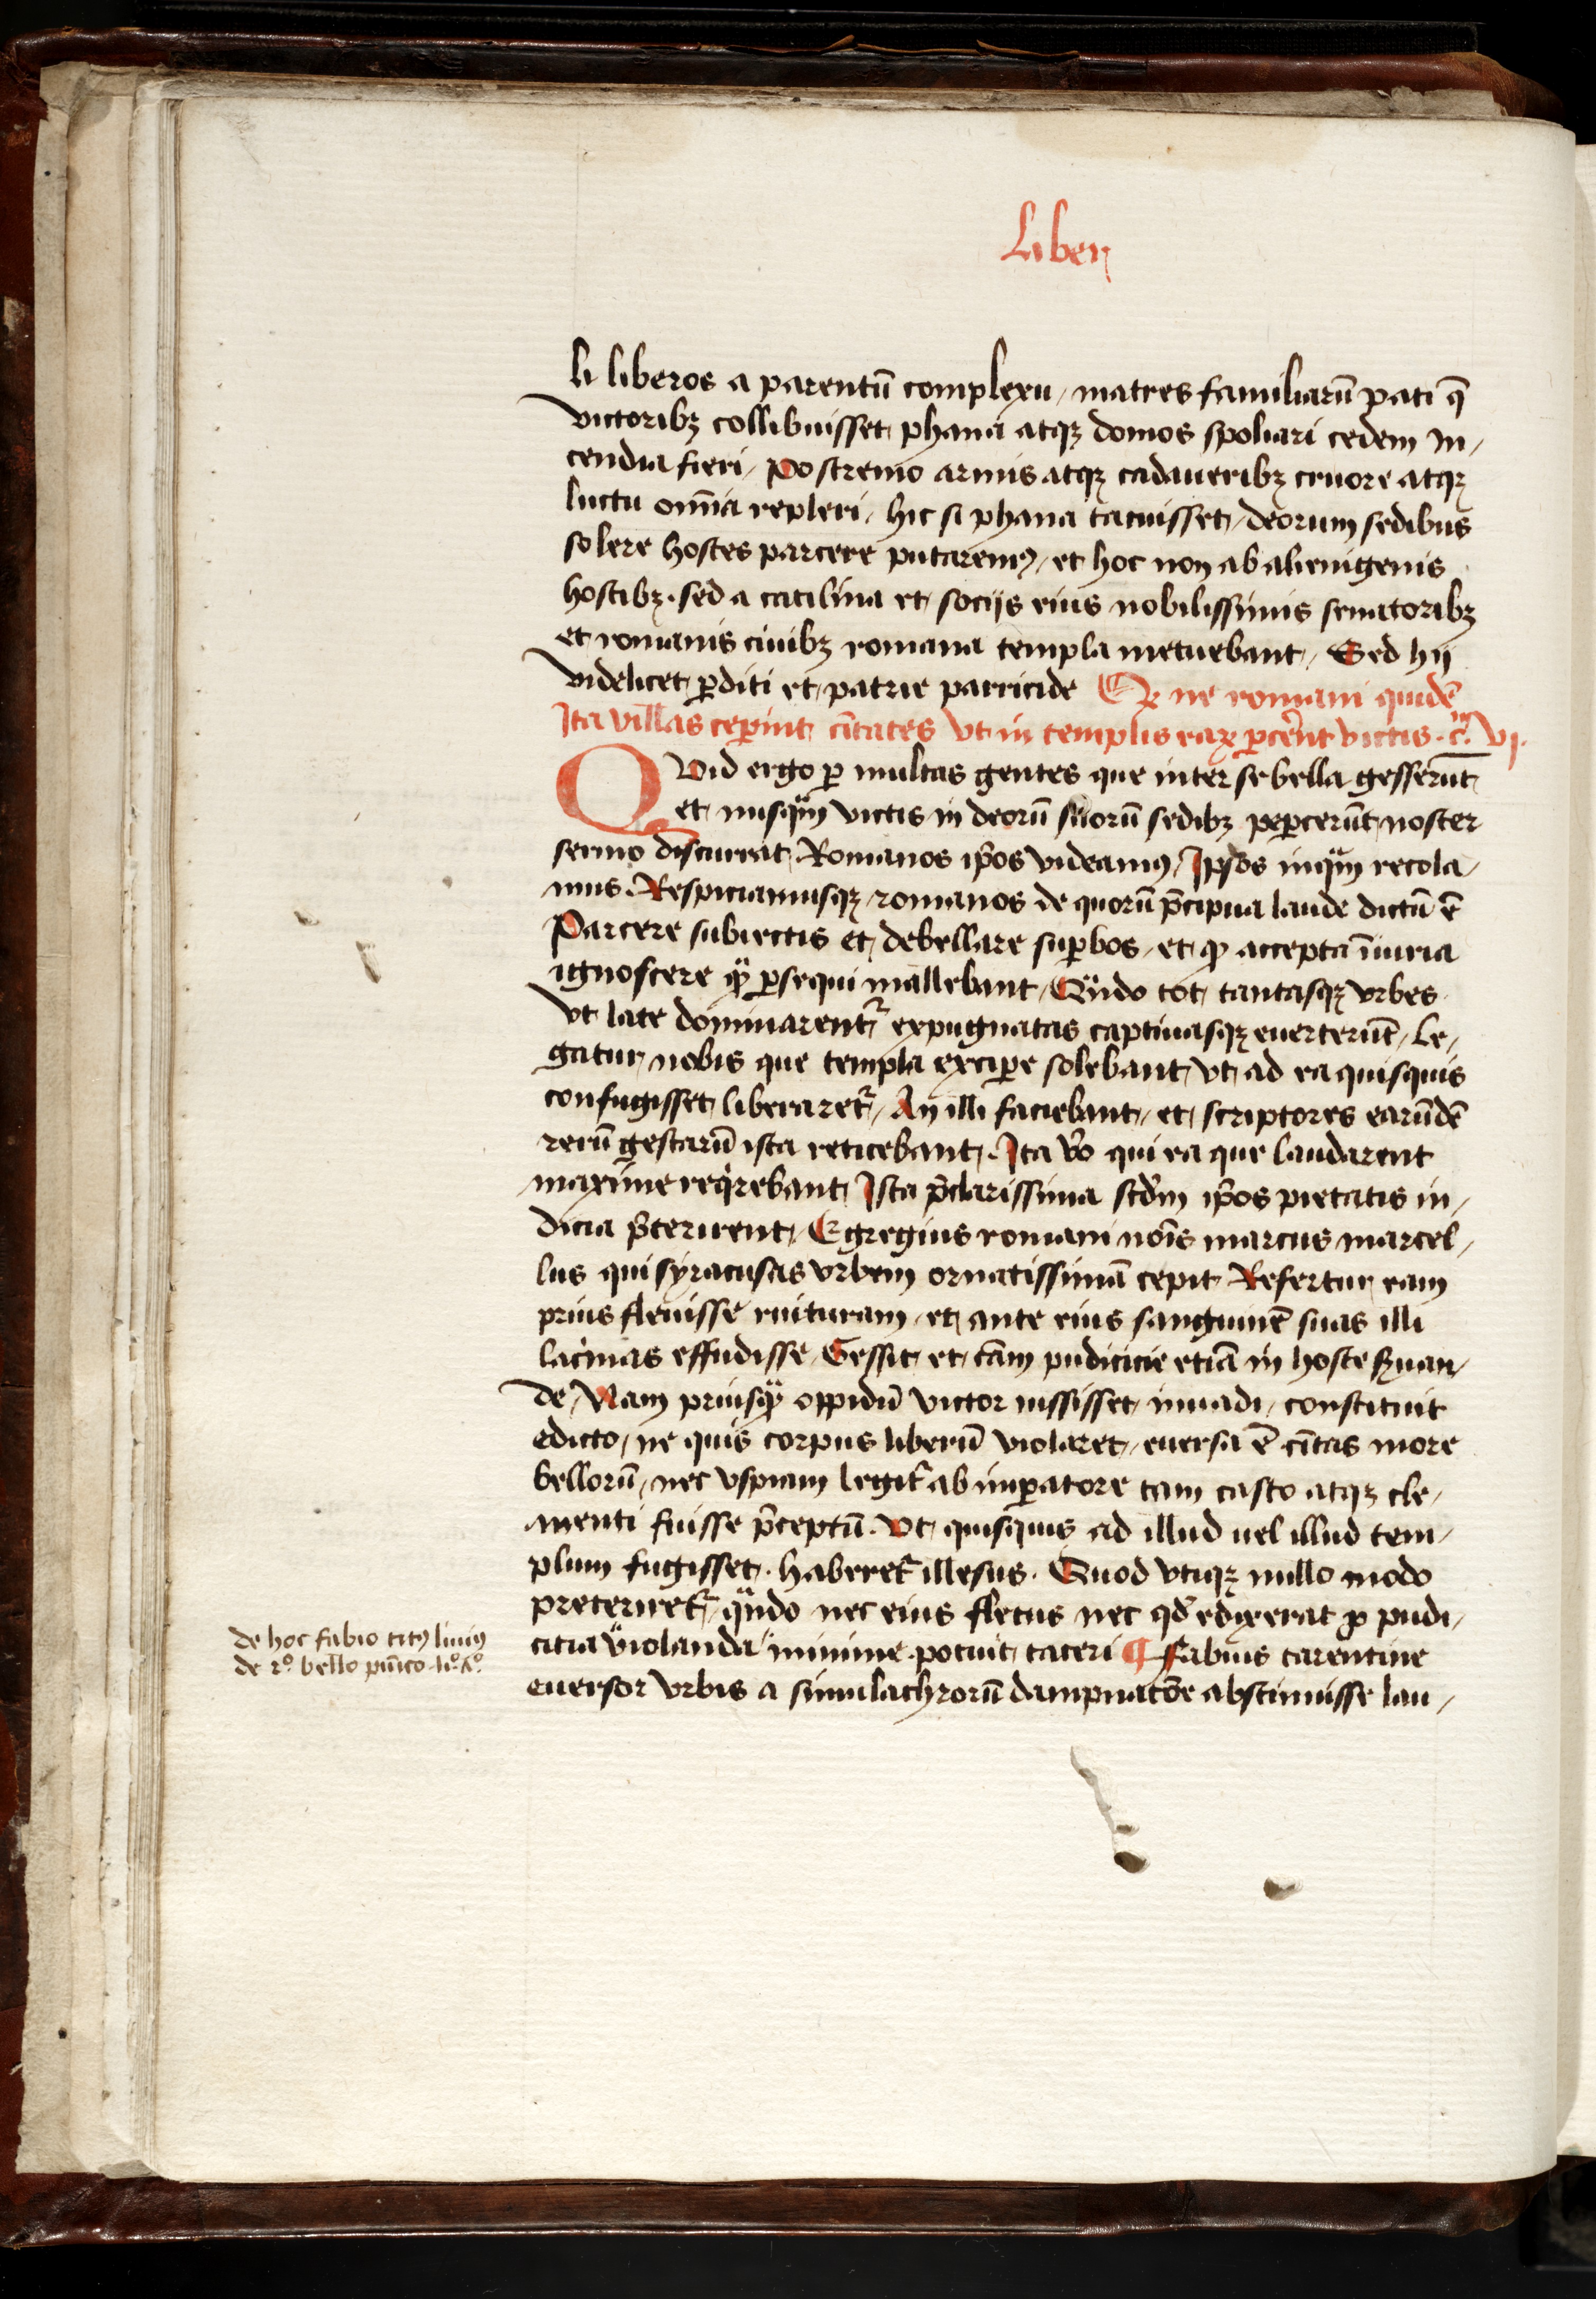 Liber
li liberos a parentū complexu / matres familiarū pati q̄
victoribꝫ collibuisset phana atqꝫ domos spoliari cedem in /
cendia fieri / Postremo armis atqꝫ cadaueribꝫ cruore atqꝫ
luctu om̄ia repleri / hic si phana tacuisset / deorum sedibus
solere hostes parcere putaremꝰ / et hoc non ab alienigenis
hostibꝫ · sed a catilina et socijs eius nobilissimis senatoribꝫ
et romanis ciuibꝫ romana templa metuebant / Sed hij
videlicet ꝑditi et patrie parricide Qꝫ ne romani quidē
Ita vllas ceꝑint ciṫates vt in templis eaꝝ ꝑcer̄ent victis · c̄ · vj ·
QVid ergo ꝑ multas gentes que inter se bella gesserūt
et nusqᷓm victis in deorū suorū sedibꝫ peꝑcerūt noster
sermo discurrat Romanos ip̄os videamꝰ / Ipsos inqᷓm recola /
mus · Respiciamusqꝫ romanos de quorū p̄cipua laude dictū ē
Parcere subiectis et debellare suꝑbos / et ꝙ accepta īiuria
ignoscere qᷓꝫ ꝑsequi mallebant / Qᷓndo tot tantasqꝫ vrbes
vt late dominarent᷑ expugnatas captiuasqꝫ euerterūt / Le /
gatur nobis que templa exciꝑe solebant vt ad ea quisquis
confugisset liberaret᷑ / An illi faciebant / et scriptores earūdē
rerū gestarū ista reticebant / Ita v̄o qui ea que laudarent
maxime reqͥrebant Ista p̄clarissima scd̄m ip̄os pietatis in /
dicia p̄terirent / Egregius romani nōis marcus marcel /
lus qui syracusas vrbem ornatissimā cepit Refertur eam
prius fleuisse ruituram / et ante eius sanguinē suas illi
lacͥmas effudisse / Gessit et cām pudicicie etiā in hoste ẜuan /
de / Nam priusqᷓꝫ oppidū victor iussisset inuadi / constituit
edicto / ne quis corpus liberū violaret / euersa ē ciūtas more
bellorū / nec vspiam legit᷑ ab imꝑatore tam casto atqꝫ cle /
menti fuisse p̄ceptū · Vt quisquis ad illud uel illud tem /
plum fugisset · haberet᷑ illesus · Quod vtiqꝫ nullo modo
preteriret᷑ / qᷓndo nec eius fletus nec qd̄ edixerat ꝓ pudi /
citia violanda minime potuit taceri ¶ Fabius tarentine
euersor vrbis a simulachrorū dampnacōe abstinuisse lau /
de hoc fabio titꝰ liuiꝰ
de 2º bello pūico